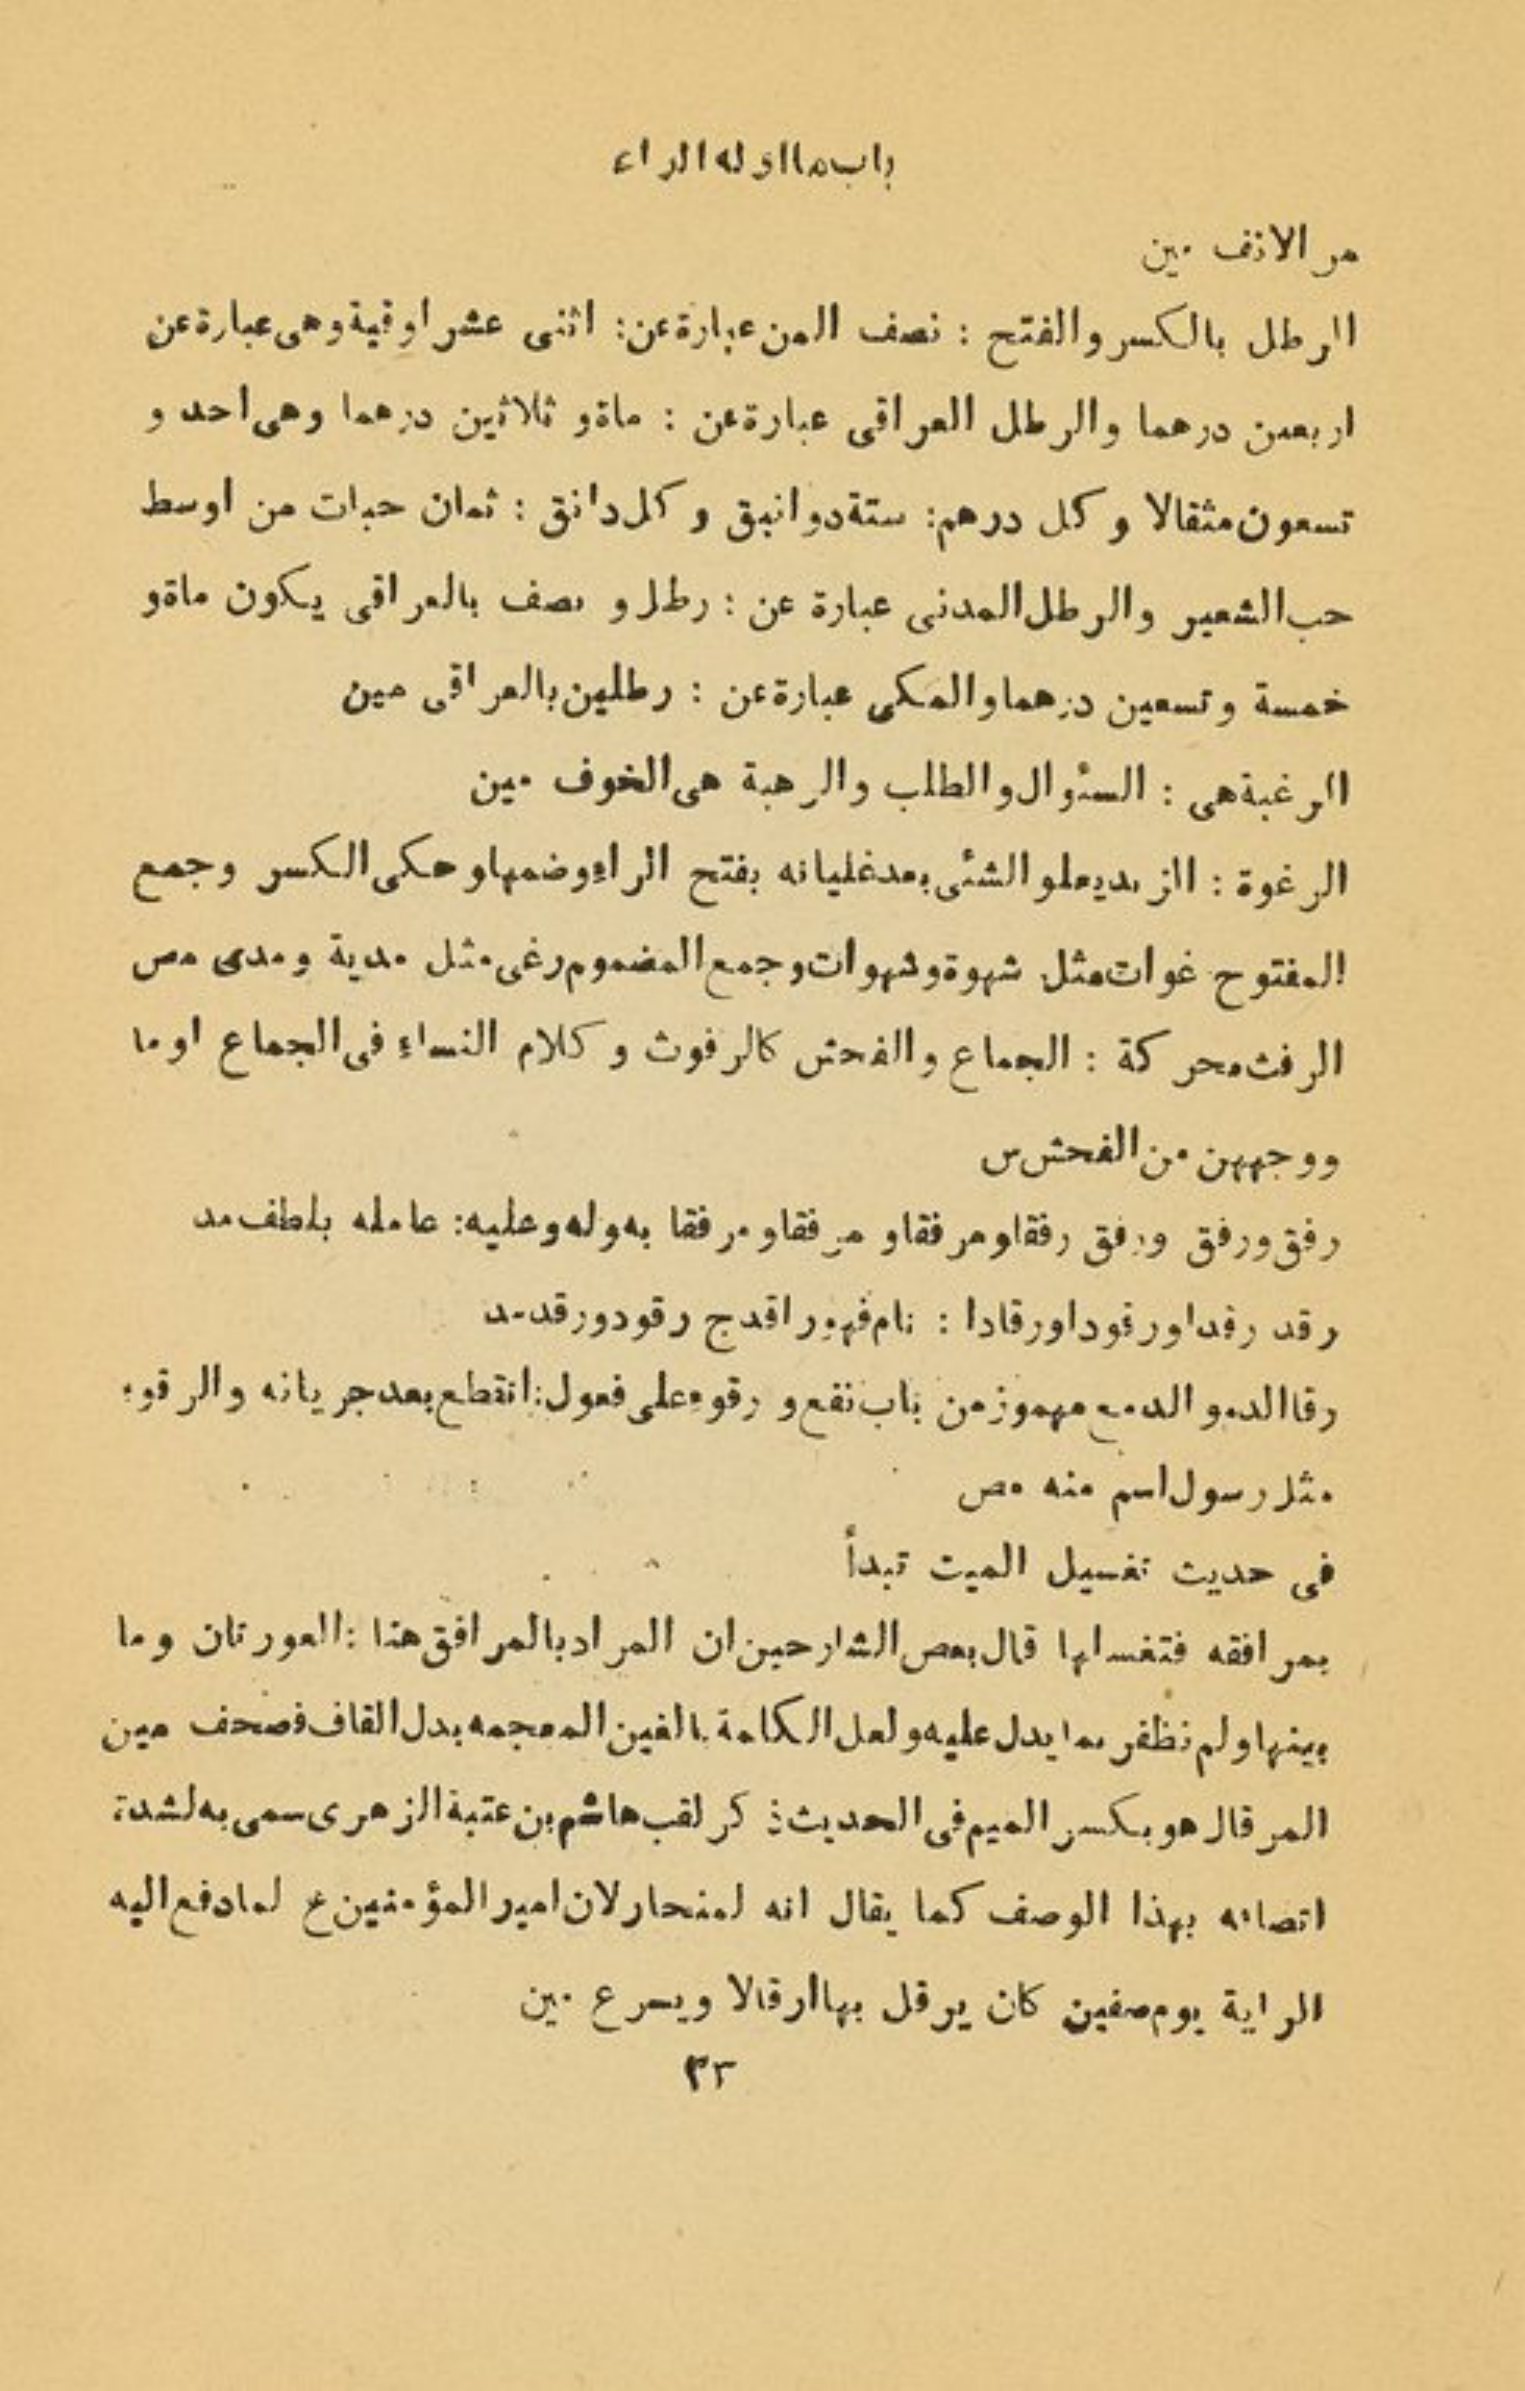 باب ما اوله الراء
مر الانف مين
الرطل بالكسر والفتح : نصف المن عبارة عن: اثنى عشر اوقية وهى عبارة عن
اربعين درهما والرطل العراقى عبارة عن : ماة و ثلاثين درهما وهى احد و
تسعون مثقالا و كل درهم: ستة دوانيق و كل دانق : ثمان حبات من اوسط
حب الشعير والرطل المدنى عبارة عن : رطل و نصف بالعراقى يكون ماة و
خمسة وتسعين درهما والمكى عبارة عن : رطلين بالعراقى مين
الرغبة هى : السئوال والطلب والرهبة هى الخوف مين
الرغوة : الزبد يعلو الشئى بعد غليانه بفتح الراء وضمها وحكى الكسر وجمع
المفتوح غوات مثل شهوة وشهوات وجمع المضموم رغى مثل مدية ومدى مص
الرفث محركة : الجماع والفحش كالرفوث وكلام النساء فى الجماع او ما
ووجههن من الفحش س
رفق ورفق ورفق رفقا ومرفقا و مرفقا ومرفقا به وله وعليه: عامله بلطف مد
رقد رقدا ورقودا ورقادا : نام فهو راقد ج رقود ورقد مد
رقا الدم و الدمع مهموز من باب نفع و رقوء على فعول: انقطع بعد جريانه والرقوء
مثل رسول اسم منه مص
فى حديث تغسيل الميت تبدأ
بمرافقه فتغسلها قال بعض الشارحين ان المراد بالمرافق هنا :العورتان وما
بينها ولم نظفر بما يدل عليه ولعل الكلمة بالغين المعجمه بدل القاف فصحف مين
المرقال هو بكسر الميم فى الحديث ذكر لقب هاشم بن عتبة الزهرى سمى به لشدة
اتصافه بهذا الوصف كما يقال انه لمنحار لان امير المؤمنين ع لما دفع اليه
الراية يوم صفين كان يرقل بها ارقالا ويسرع مين
٣٣